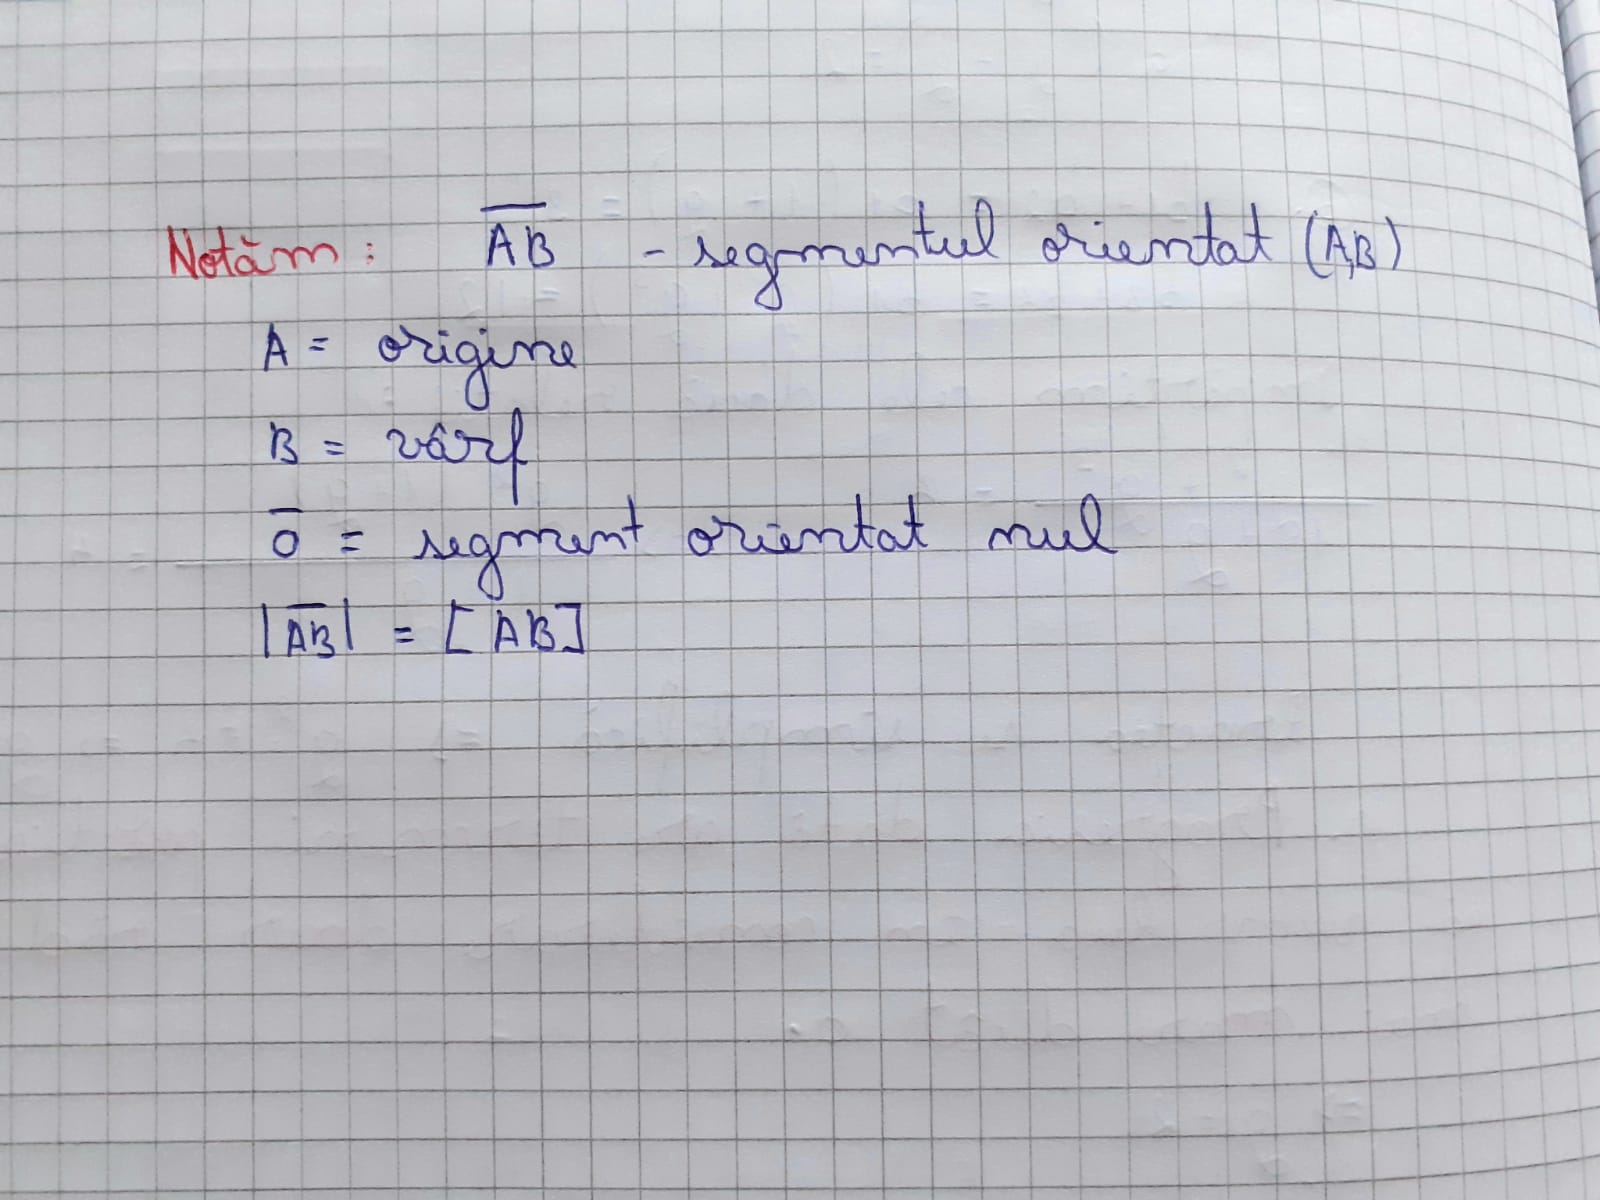 Notăm: A̅B̅ - segmentul orientat (A,B)
A = origine
B = vârf
0̅ = segment orientat nul
|A̅B̅| = [AB]